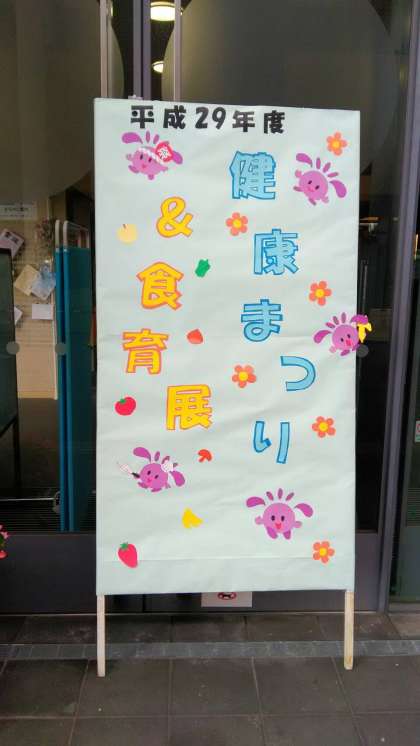 平成29年度
健康まつり
&食育展